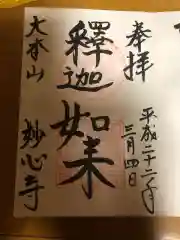 奉拝
平成二十二年
三月四日
釋迦如来
大本山
妙心寺